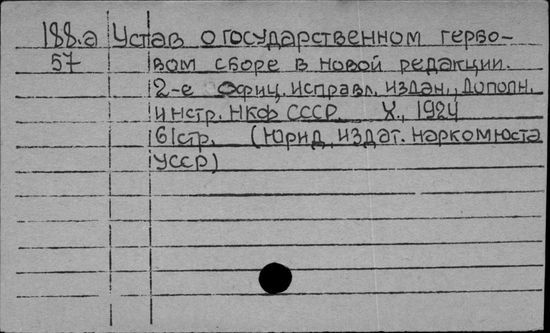 188.а Устав о государственном гербо-
57 вом сборе в новой редакции.
2-е Офиц. исправл. издан., дополн.
инстр. НКФ СССР Х., 1924
61стр. (Юрид. издат. Наркомюста
УССР)